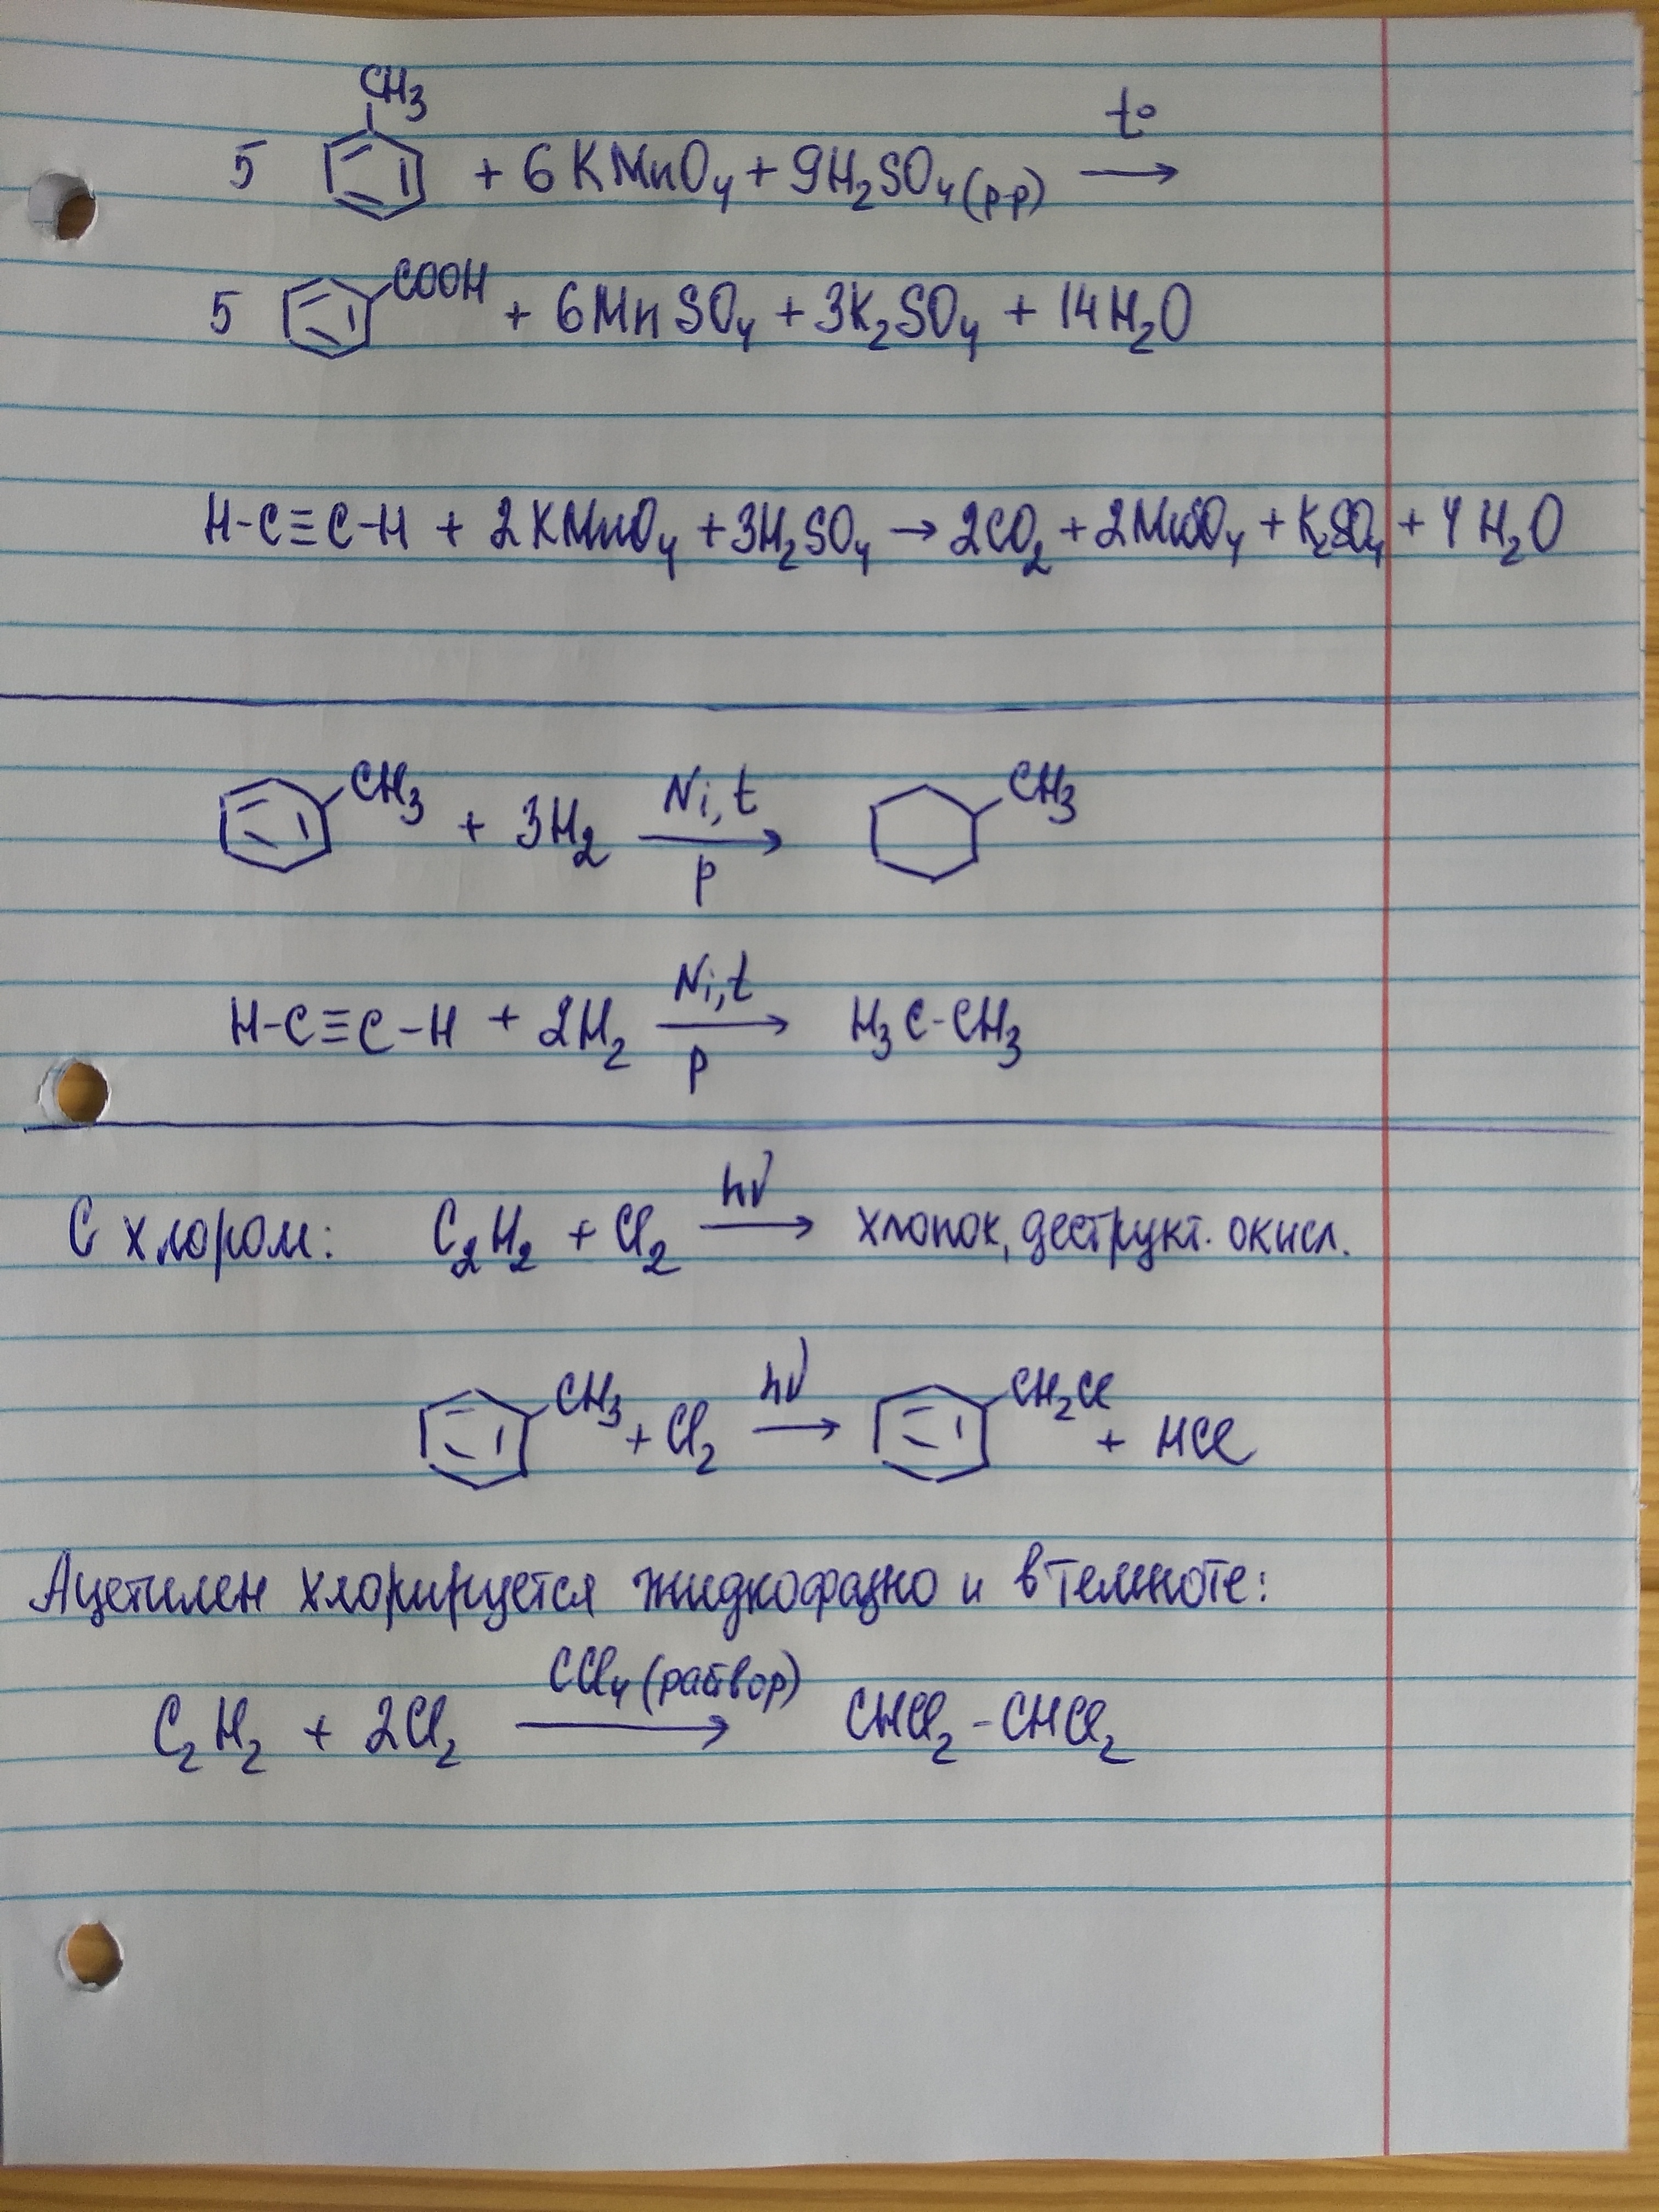 CH₃
5 + 6 KMnO₄ + 9H₂SO₄ (р-р) t° →
5 COOH + 6MnSO₄ + 3K₂SO₄ + 14H₂O
H-C≡C-H + 2KMnO₄ + 3H₂SO₄ → 2CO₂ + 2MnSO₄ + K₂SO₄ + 4H₂O
CH₃ + 3H₂ Ni, t → p CH₃
H-C≡C-H + 2H₂ Ni, t → p H₃C-CH₃
С хлором: C₂H₂ + Cl₂ hν → хлопок, деструкт. окисл.
CH₃ + Cl₂ hν → CH₂Cl + HCl
Ацетилен хлорируется жидкофазно и в темноте:
CCl₄ (раствор)
C₂H₂ + 2Cl₂ → CHCl₂-CHCl₂